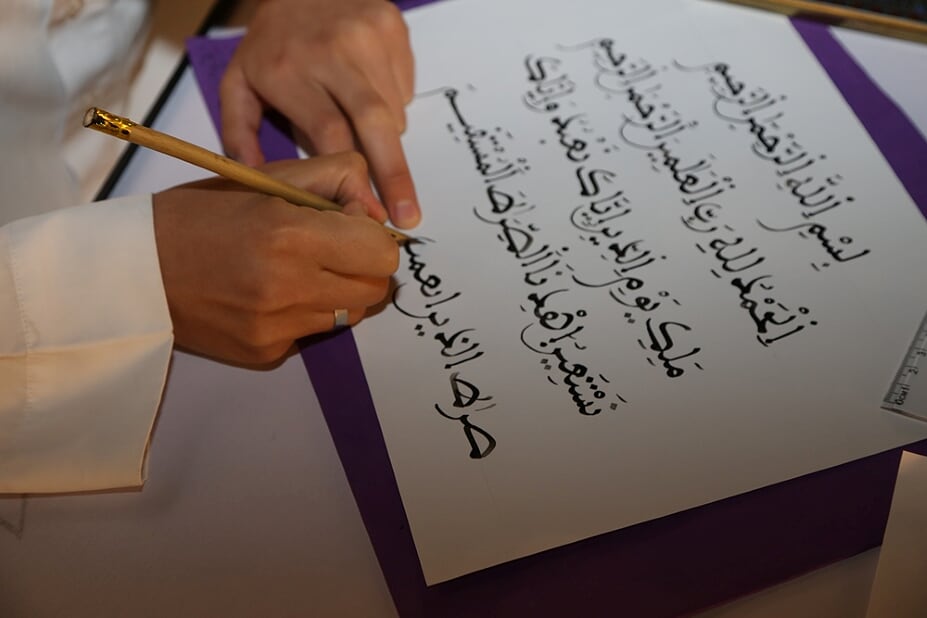 بِسْمِ اللَّهِ الرَّحْمَٰنِ الرَّحِيمِ
اَلْحَمْدُ لِلهِ رَبِّ الْعَٰلَمِينَ الرَّحْمَٰنِ الرَّحِيمِ
مَلِكِ يَوْمِ الدِّينِ إِيَّاكَ نَعْبُدُ وَإِيَّاكَ
نَسْتَعِينُ اهْدِنَا الصِّرَاطَ الْمُسْتَقِيمَ
صراط الذين انعمت
0cm 1 2 3